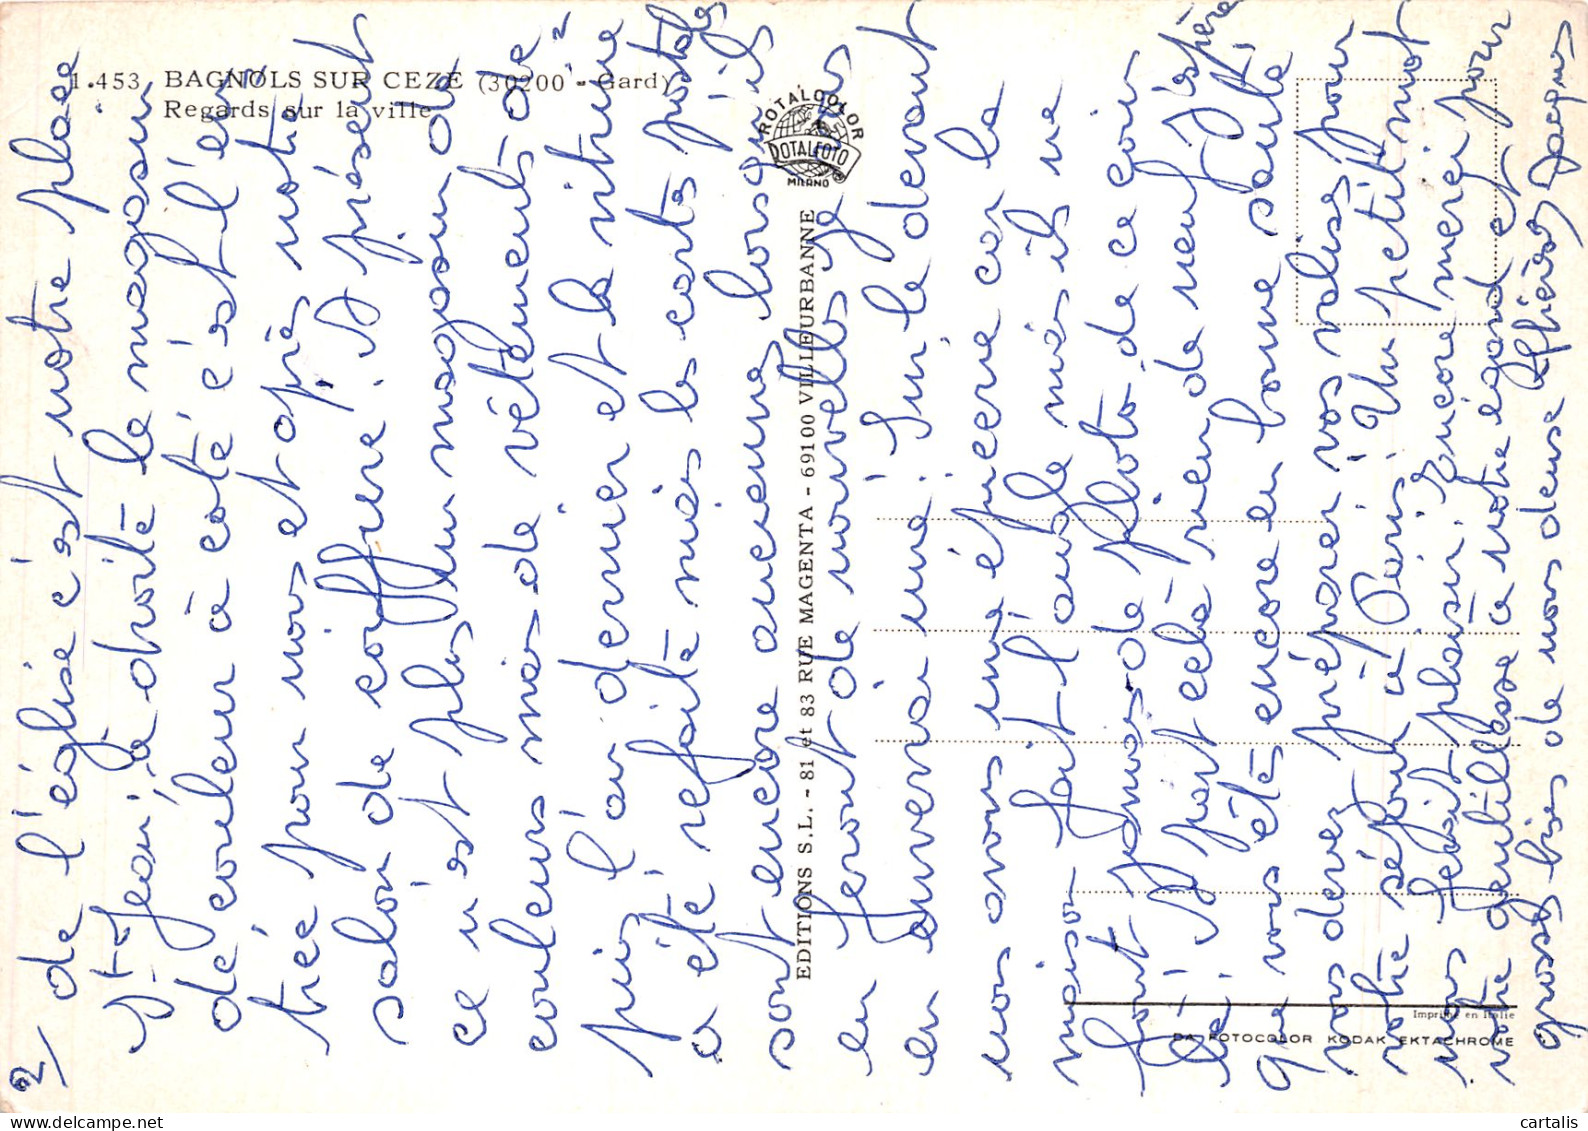 1.453 BAGNOLS SUR CEZE (30200 - Gard)
Regards sur la ville
ROTALCOLOR
ROTALFOTO
MILANO
EDITIONS S.L. - 81 et 83 RUE MAGENTA - 69100 VILLEURBANNE
Imprimé en Italie
DA FOTOCOLOR KODAK EKTACHROME
2/ de l'église c'est notre place
St Jean, à droite le magasin
de couleur à coté c'est l'en
trée pour nous et après notre
salon de coiffure. A présent
ce n'est plus un magasin de
couleurs mais de vêtements de
puis l'an dernier et la vitrine
a été refaite mais les cartes postales
sont encore anciennes lorsqu'ils
en feront de nouvelles je vous
en enverrai une. Sur le devant
nous avons une épicerie car la
maison fait l'angle mais ils ne
font jamais de photo de ce coin
là. A part cela rien de neuf j'espère
que vous êtes encore en bonne santé
vous devez préparer vos valises pour
votre séjour à Paris. Un petit mot
nous ferait plaisir. Encore merci pour
votre gentillesse à notre égard et
grosses bises de nous deux
Jacques
cartalis